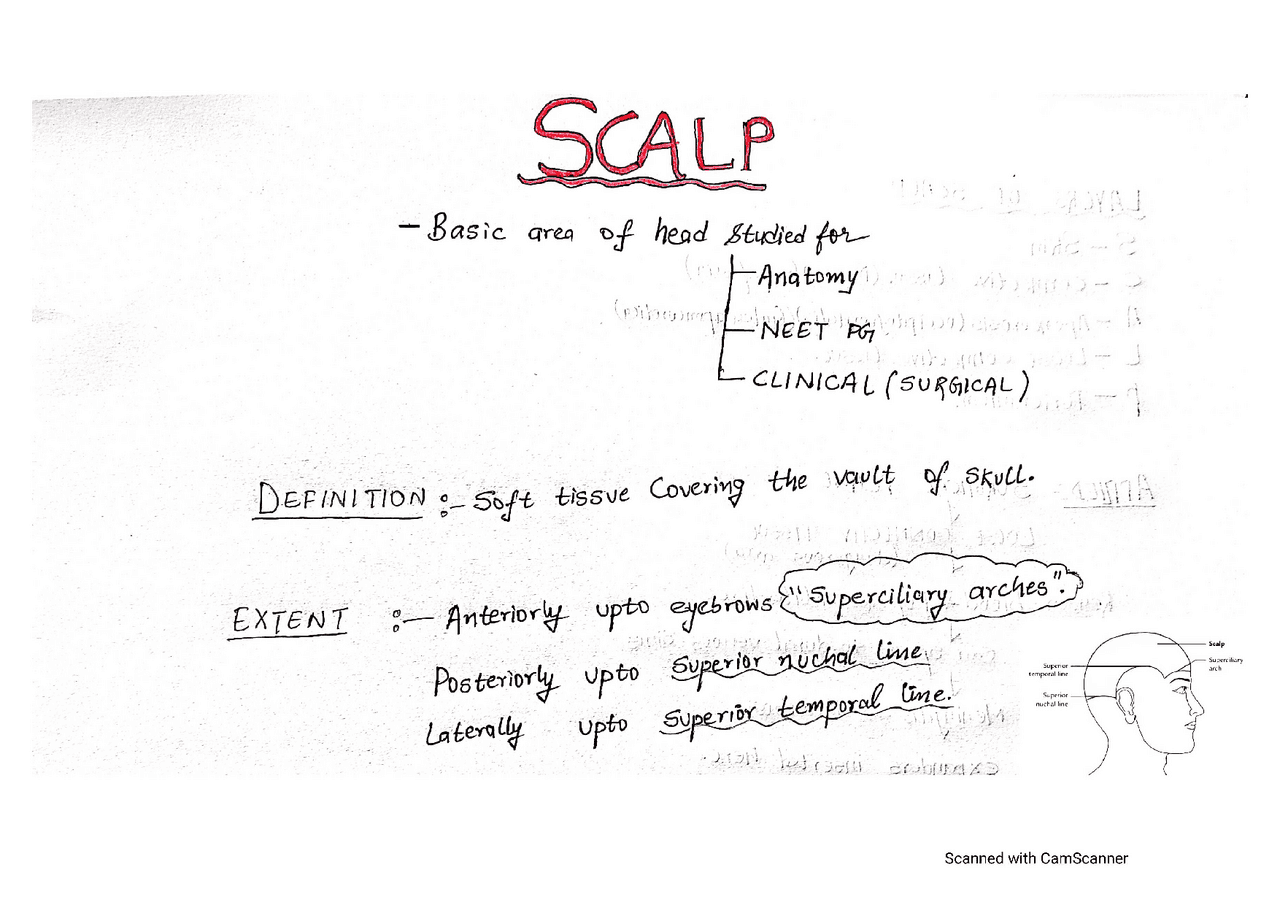 SCALP
- Basic area of head studied for
Anatomy
NEET PG
CLINICAL (SURGICAL)
DEFINITION :- Soft tissue Covering the vault of skull.
EXTENT :- Anteriorly upto eyebrows "Superciliary arches".
Posteriorly upto Superior nuchal line
Laterally upto Superior temporal line.
Scalp
Superciliary
arch
Superior
temporal line
Superior
nuchal line
Scanned with CamScanner